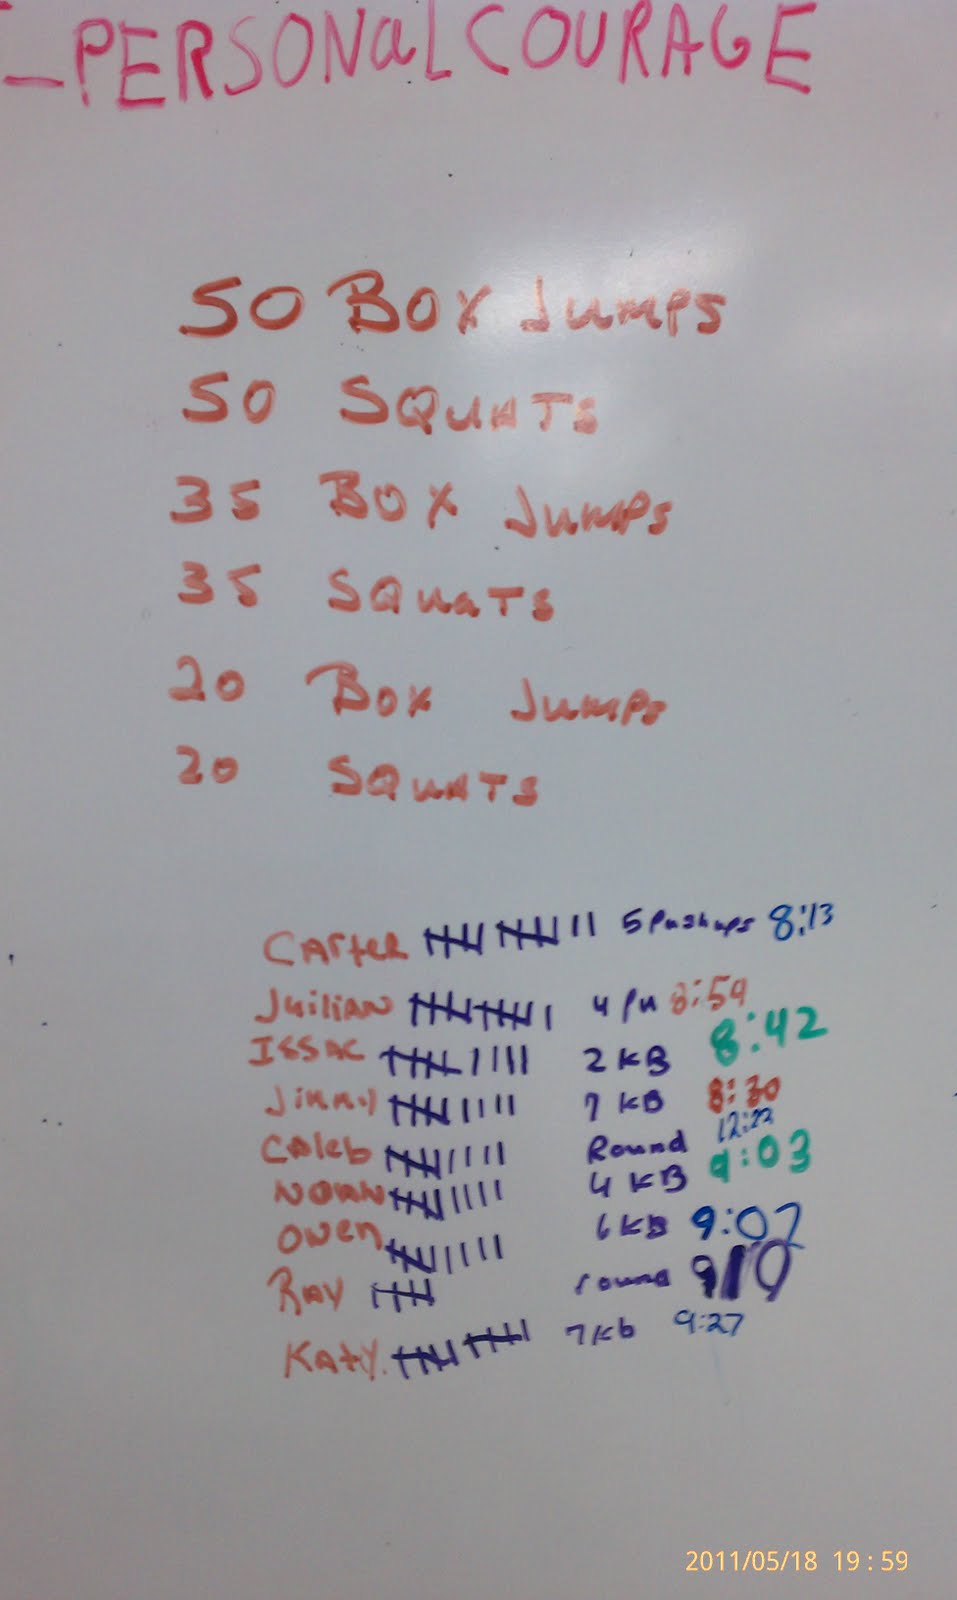 - PERSONAL COURAGE
50 Box Jumps
50 SQuATS
35 Box Jumps
35 SQuaTS
20 Box Jumps
20 SQuATS
CArter 5 Pushups 8:13
JuiliAN 4 Pu 8:59
ISSAC 2 KB 8:42
Jimmy 7 KB 8:30
CAleb Round 12:22
NOAN 4 KB 9:03
Owen 6 KB 9:07
RAY round 9:10
KAtY. 7 Kb 9:27
2011/05/18 19:59